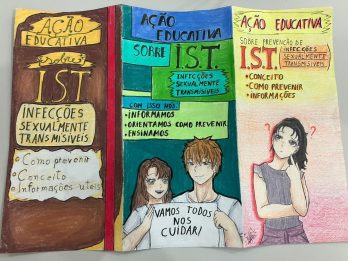 AÇÃO
EDUCATIVA
sobre
I.S.T
INFECÇÕES
SEXUALMENTE
TRANSMISÍVEIS
• Como prevenir
• Conceito
• Informações uteis
AÇÃO
EDUCATIVA
SOBRE I.S.T.
INFECÇÕES
SEXUALMENTE
TRANSMISÍVEIS
COM ISSO NÓS:
• INFORMAMOS
• ORIENTAMOS COMO PREVENIR
• ENSINAMOS
VAMOS TODOS
NOS
CUIDAR!
AÇÃO EDUCATIVA
SOBRE PREVENCÃO DE
I.S.T.
INFECÇÕES
SEXUALMENTE
TRANSMISÍVEIS
• CONCEITO
• COMO PREVENIR
• INFORMAÇÕES
? ?